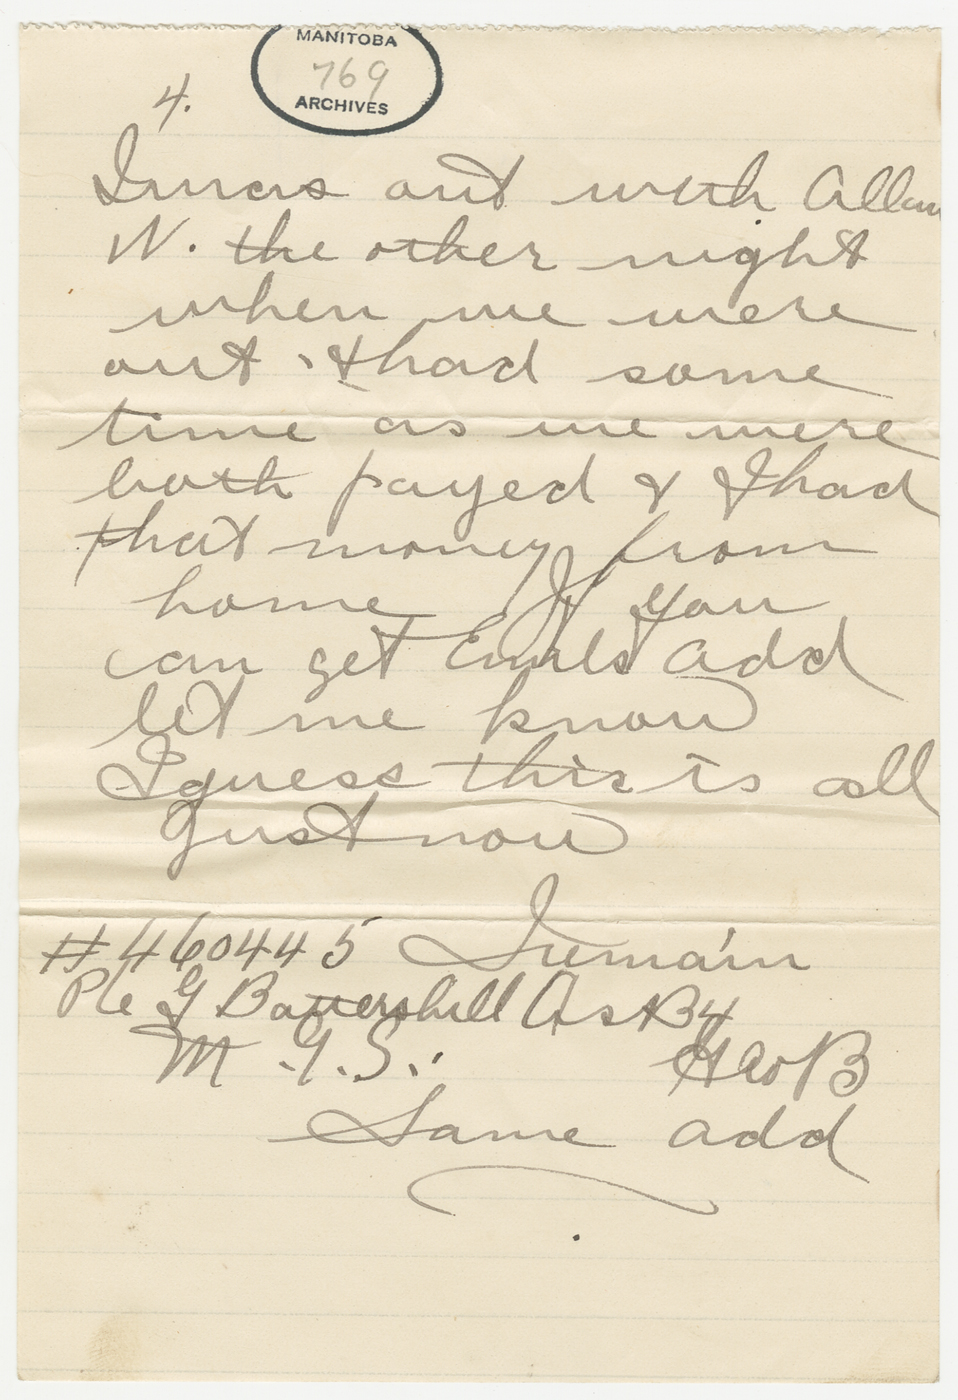 MANITOBA
769
ARCHIVES
4.
I was out with Allan
W. the other night
when we were
out & had some
time as we were
both payed & I had
that money from
home If you
can get Emils add
let me know
I guess this is all
just now
#460445 I remain
Pte G Battershill As B4
M.G.S. Geo B
Same add